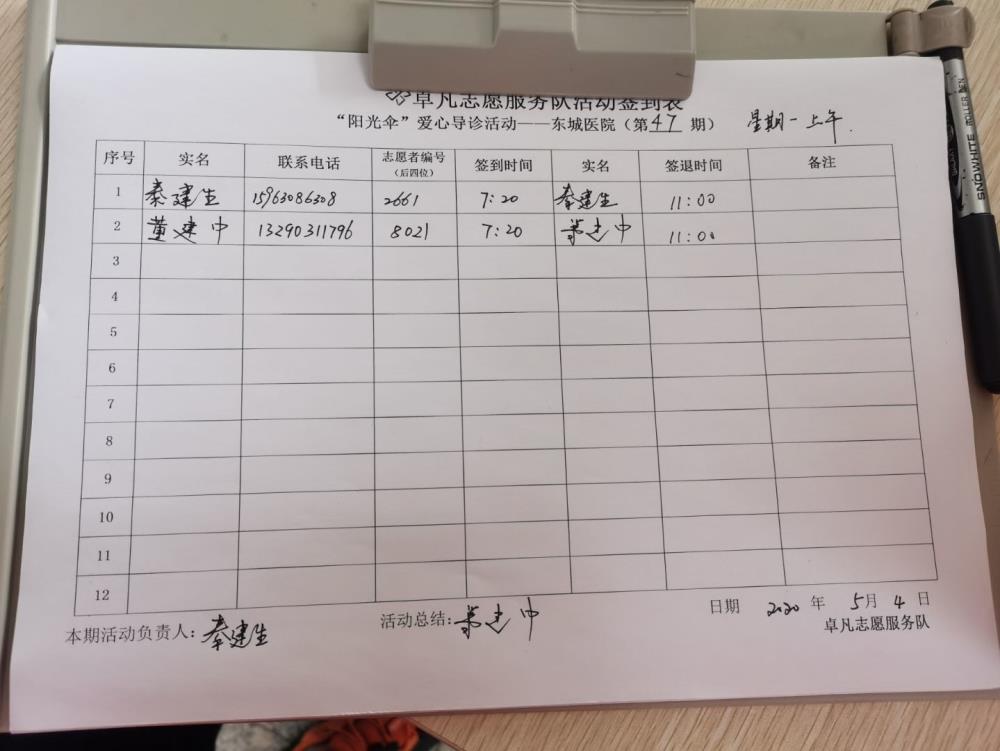 卓凡志愿服务队活动签到表
“阳光伞”爱心导诊活动——东城医院（第47期） 星期一上午.
序号 实名 联系电话 志愿者编号（后四位） 签到时间 实名 签退时间 备注
1 秦建生 15963086308 2661 7:20 秦建生 11:00
2 董建中 13290311796 8021 7:20 董建中 11:00
3
4
5
6
7
8
9
10
11
12
本期活动负责人：秦建生 活动总结：董建中 日期 2020年5月4日
卓凡志愿服务队
SNOWHITE